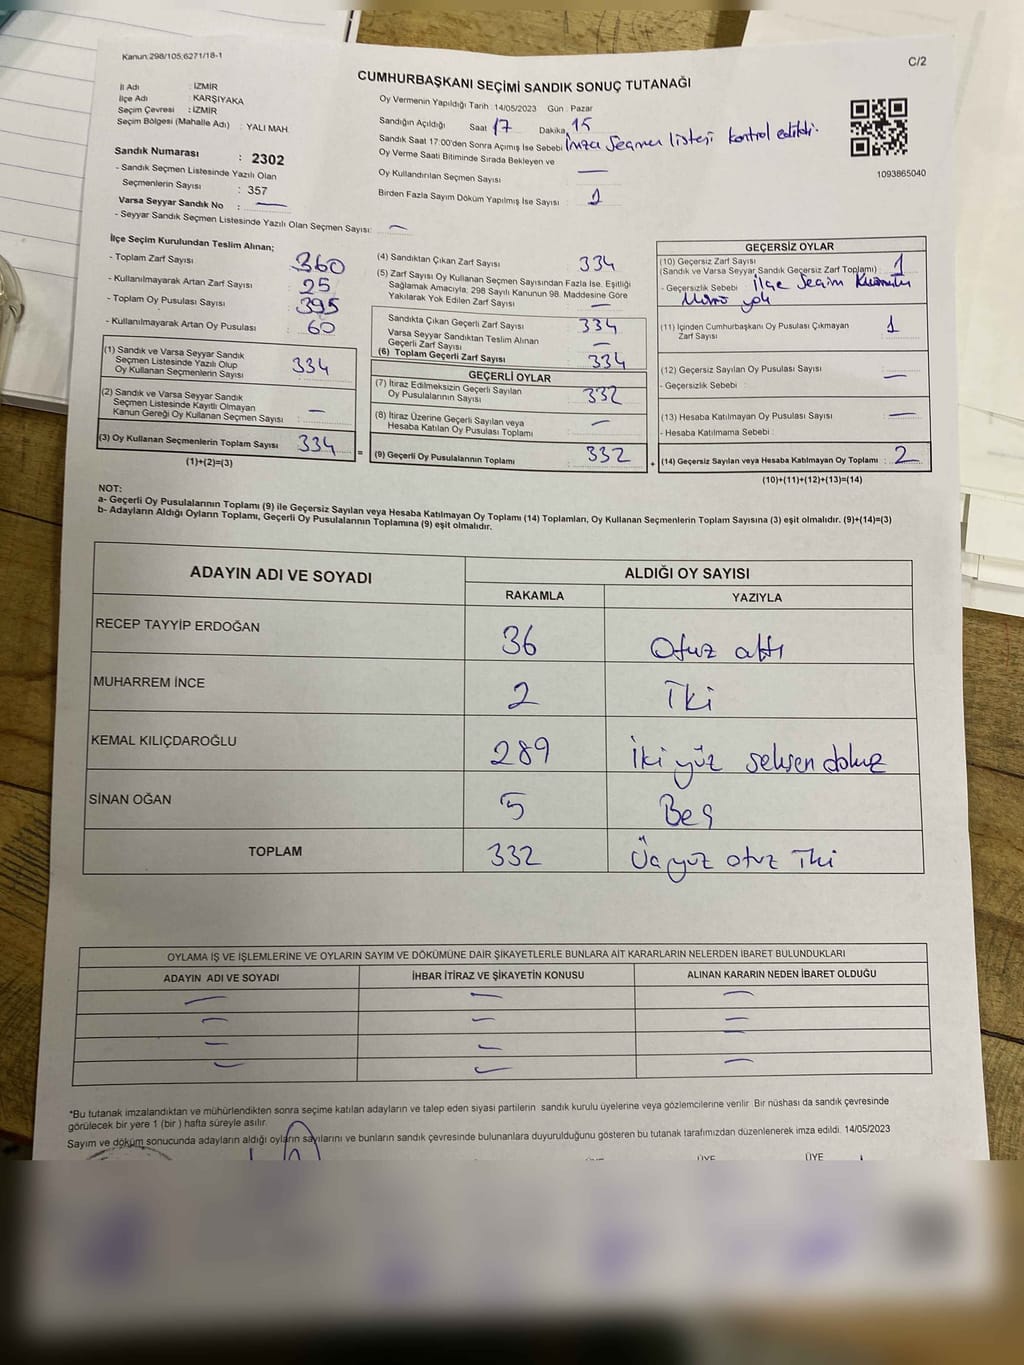 Kanun:298/105;6271/18-1
C/2
CUMHURBAŞKANI SEÇİMİ SANDIK SONUÇ TUTANAĞI
İl Adı : İZMİR
İlçe Adı : KARŞIYAKA
Seçim Çevresi : İZMİR
Seçim Bölgesi (Mahalle Adı) : YALI MAH.
Sandık Numarası : 2302
- Sandık Seçmen Listesinde Yazılı Olan
Seçmenlerin Sayısı : 357
Varsa Seyyar Sandık No : —
- Seyyar Sandık Seçmen Listesinde Yazılı Olan Seçmen Sayısı: —
Oy Vermenin Yapıldığı Tarih :14/05/2023 Gün : Pazar
Sandığın Açıldığı Saat 17 Dakika 15
Sandık Saat 17:00'den Sonra Açımış İse Sebebi İmza Seçmen listesi kontrol edildi.
Oy Verme Saati Bitiminde Sırada Bekleyen ve
Oy Kullandırılan Seçmen Sayısı —
Birden Fazla Sayım Döküm Yapılmış İse Sayısı : 1
1093865040
İlçe Seçim Kurulundan Teslim Alınan;
- Toplam Zarf Sayısı 360
- Kullanılmayarak Artan Zarf Sayısı 25
- Toplam Oy Pusulası Sayısı 395
- Kullanılmayarak Artan Oy Pusulası 60
(1) Sandık ve Varsa Seyyar Sandık
Seçmen Listesinde Yazılı Olup
Oy Kullanan Seçmenlerin Sayısı 334
(2) Sandık ve Varsa Seyyar Sandık
Seçmen Listesinde Kayıtlı Olmayan
Kanun Gereği Oy Kullanan Seçmen Sayısı : —
(3) Oy Kullanan Seçmenlerin Toplam Sayısı : 334 =
(1)+(2)=(3)
(4) Sandıktan Çıkan Zarf Sayısı 334
(5) Zarf Sayısı Oy Kullanan Seçmen Sayısından Fazla İse, Eşitliği
Sağlamak Amacıyla; 298 Sayılı Kanunun 98. Maddesine Göre
Yakılarak Yok Edilen Zarf Sayısı —
Sandıkta Çıkan Geçerli Zarf Sayısı 334
Varsa Seyyar Sandıktan Teslim Alınan
Geçerli Zarf Sayısı —
(6) Toplam Geçerli Zarf Sayısı 334
GEÇERLİ OYLAR
(7) İtiraz Edilmeksizin Geçerli Sayılan
Oy Pusulalarının Sayısı 332
(8) İtiraz Üzerine Geçerli Sayılan veya
Hesaba Katılan Oy Pusulası Toplamı —
(9) Geçerli Oy Pusulalarının Toplamı : 332 +
GEÇERSİZ OYLAR
(10) Geçersiz Zarf Sayısı
(Sandık ve Varsa Seyyar Sandık Geçersiz Zarf Toplamı) 1
- Geçersizlik Sebebi : İlçe Seçim Kurulu
Mührü yok
(11) İçinden Cumhurbaşkanı Oy Pusulası Çıkmayan
Zarf Sayısı 1
(12) Geçersiz Sayılan Oy Pusulası Sayısı —
- Geçersizlik Sebebi :
(13) Hesaba Katılmayan Oy Pusulası Sayısı —
- Hesaba Katılmama Sebebi :
(14) Geçersiz Sayılan veya Hesaba Katılmayan Oy Toplamı : 2
(10)+(11)+(12)+(13)=(14)
NOT:
a- Geçerli Oy Pusulalarının Toplamı (9) ile Geçersiz Sayılan veya Hesaba Katılmayan Oy Toplamı (14) Toplamları, Oy Kullanan Seçmenlerin Toplam Sayısına (3) eşit olmalıdır. (9)+(14)=(3)
b- Adayların Aldığı Oyların Toplamı, Geçerli Oy Pusulalarının Toplamına (9) eşit olmalıdır.
ADAYIN ADI VE SOYADI ALDIĞI OY SAYISI
RAKAMLA YAZIYLA
RECEP TAYYİP ERDOĞAN 36 Otuz altı
MUHARREM İNCE 2 İki
KEMAL KILIÇDAROĞLU 289 İki yüz seksen dokuz
SİNAN OĞAN 5 Beş
TOPLAM 332 Üçyüz otuz iki
OYLAMA İŞ VE İŞLEMLERİNE VE OYLARIN SAYIM VE DÖKÜMÜNE DAİR ŞİKAYETLERLE BUNLARA AİT KARARLARIN NELERDEN İBARET BULUNDUKLARI
ADAYIN ADI VE SOYADI İHBAR İTİRAZ VE ŞİKAYETİN KONUSU ALINAN KARARIN NEDEN İBARET OLDUĞU
*Bu tutanak imzalandıktan ve mühürlendikten sonra seçime katılan adayların ve talep eden siyasi partilerin sandık kurulu üyelerine veya gözlemcilerine verilir. Bir nüshası da sandık çevresinde
görülecek bir yere 1 (bir ) hafta süreyle asılır.
Sayım ve döküm sonucunda adayların aldığı oyların sayılarını ve bunların sandık çevresinde bulunanlara duyurulduğunu gösteren bu tutanak tarafımızdan düzenlenerek imza edildi. 14/05/2023
ÜYE ÜYE ÜYE